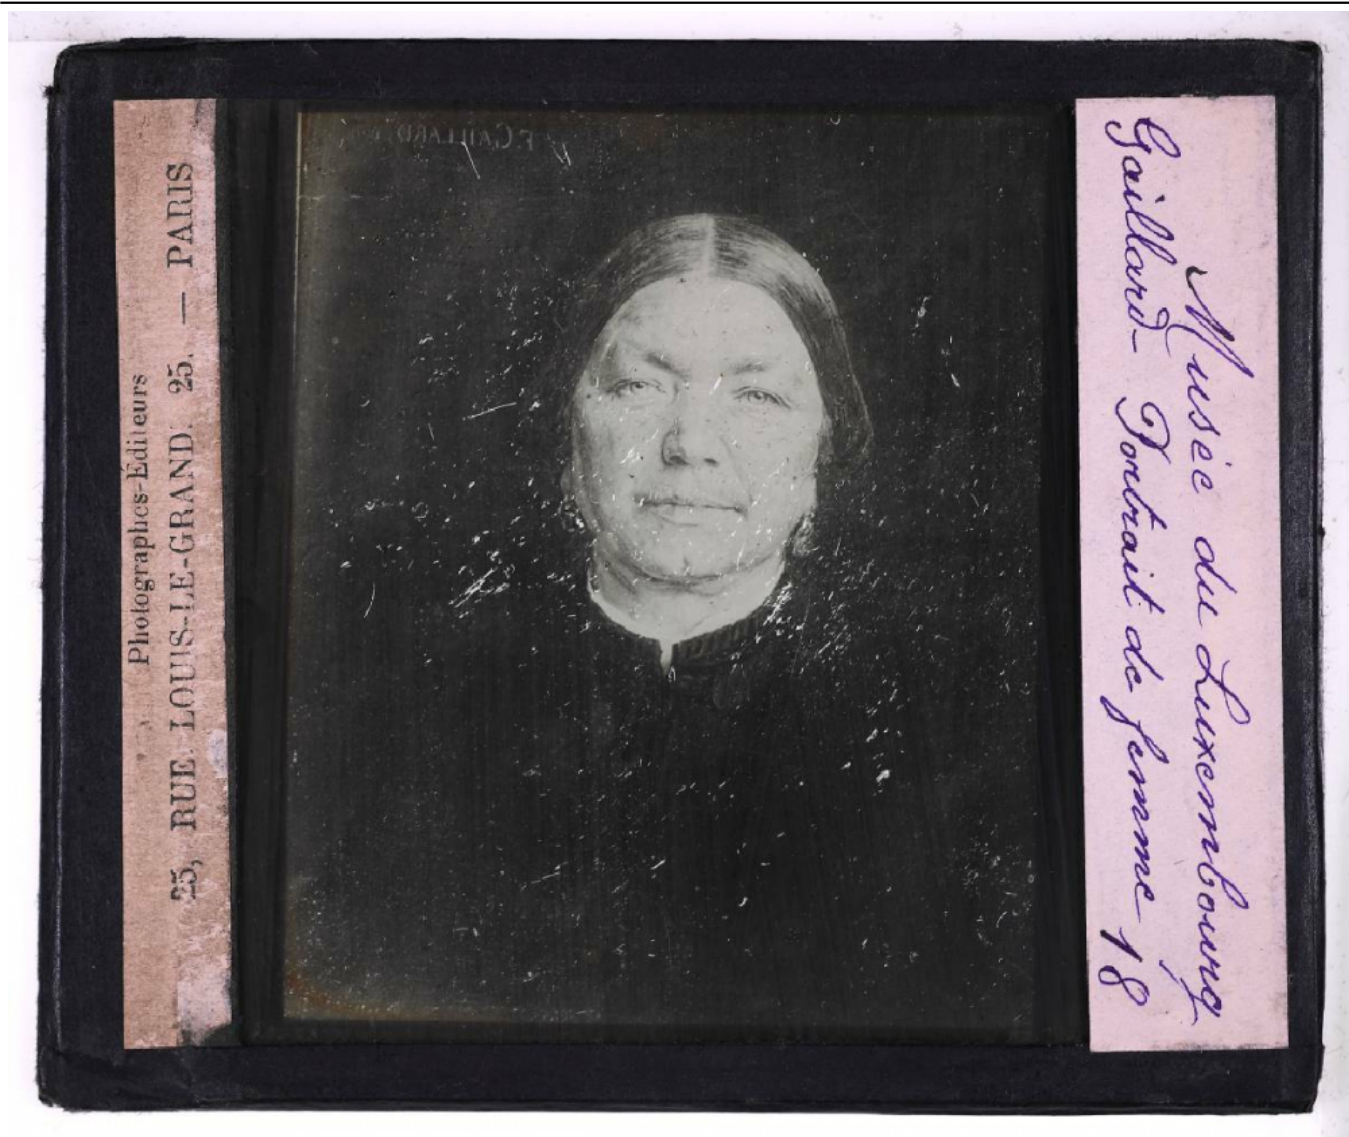 Photographes-Éditeurs
25, RUE LOUIS-LE-GRAND. 25. — PARIS
F. GAILLARD
Musée du Luxembourg
Gaillard - Portrait de femme 18